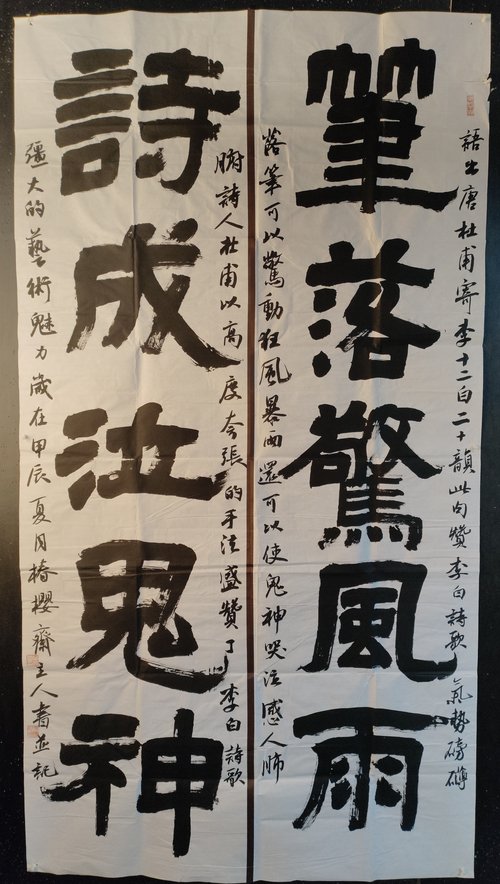 語出唐杜甫寄李十二白二十韻此句贊李白詩歌氣勢磅礴
筆落驚風雨
落筆可以驚動狂風暴雨還可以使鬼神哭泣感人肺
腑詩人杜甫以高度夸張的手法盛贊了李白詩歌
詩成泣鬼神
彊大的藝術魅力歲在甲辰夏月椿櫻齋主人書並記